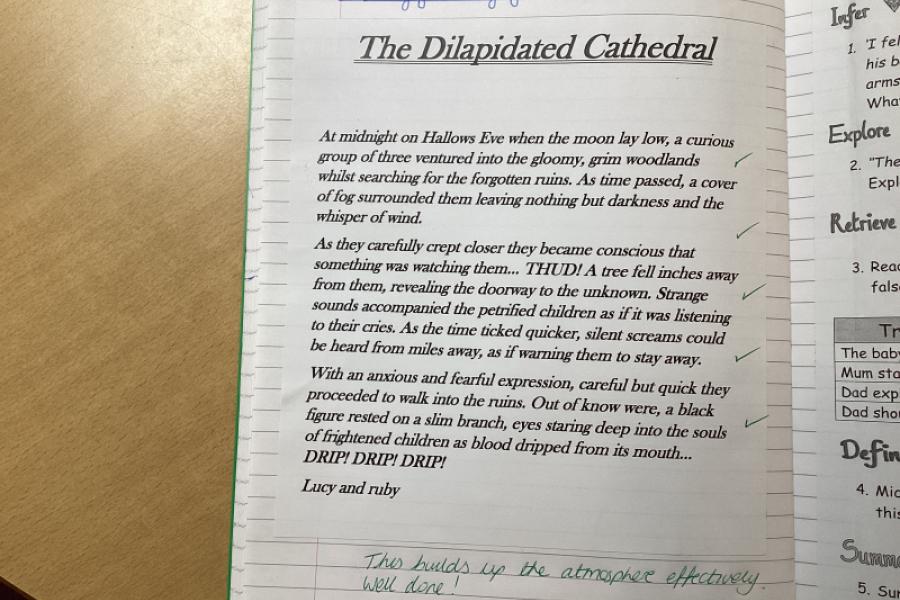 The Dilapidated Cathedral
At midnight on Hallows Eve when the moon lay low, a curious
group of three ventured into the gloomy, grim woodlands
whilst searching for the forgotten ruins. As time passed, a cover
of fog surrounded them leaving nothing but darkness and the
whisper of wind.
As they carefully crept closer they became conscious that
something was watching them... THUD! A tree fell inches away
from them, revealing the doorway to the unknown. Strange
sounds accompanied the petrified children as if it was listening
to their cries. As the time ticked quicker, silent screams could
be heard from miles away, as if warning them to stay away.
With an anxious and fearful expression, careful but quick they
proceeded to walk into the ruins. Out of know were, a black
figure rested on a slim branch, eyes staring deep into the souls
of frightened children as blood dripped from its mouth...
DRIP! DRIP! DRIP!
Lucy and ruby
This builds up the atmosphere effectively.
Well done!
Infer
1. 'I
his
arms
Explore
2. "The
Retrieve
3.
The
Mum
Dad
Dad
4.
this
5.